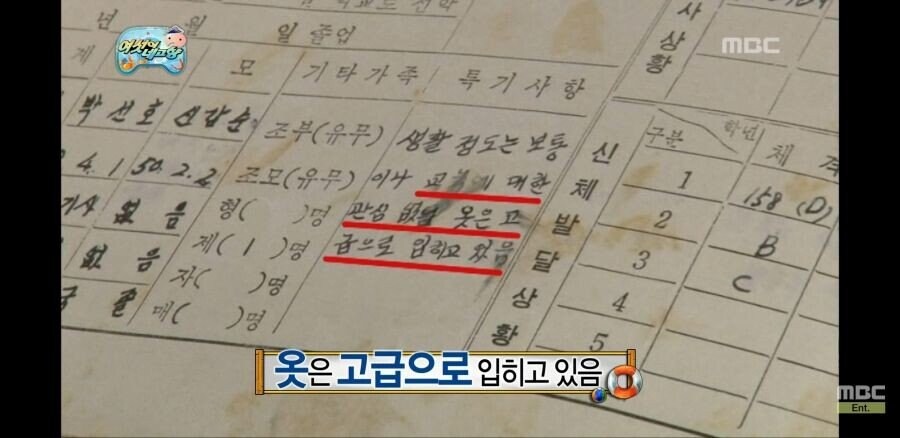 여섯이 네고향
MBC
년 월 일 졸업
사 상황
계 모 기타가족 특기사항
박선호 신갑순
4. 1 50. 2. 2
없음
없음
졸
조부(유무)
조모(유무)
형( )명
제( 1 )명
자( )명
매( )명
생활 정도는 보통
이나 대한
관심 없고 옷은 고
급으로 입히고 있음
신체발달상황
구분 학년 체격
1 158 (D)
2 B
3 C
4
5
옷은 고급으로 입히고 있음
MBC
Ent.